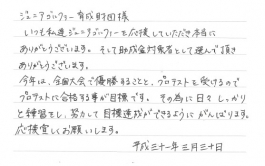 ジュニアゴルファー育成財団様
いつも私達ジュニアゴルファーを応援していただき本当に
ありがとうございます。そして助成金対象者として選んで頂き
ありがとうございます。
今年は、全国大会で優勝することと、プロテストを受けるので
プロテストに合格する事が目標です。その為に日々しっかり
と練習をし、努力して目標達成ができるようにがんばります。
応援宜しくお願いします。
平成三十一年 三月三十日